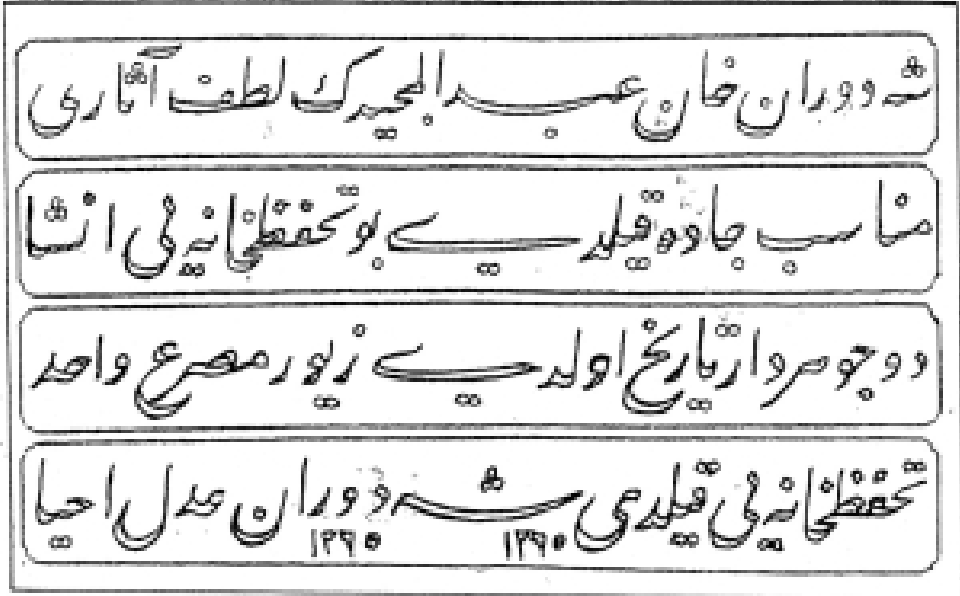 شه دوران خان عبد المجیدك لطف آثاری
مناسب جاده قیلدی بو تحفظخانه یی انشا
دو جوهردار تاریخ اولدی زیور مصرع واحد
تحفظخانه یی قیلدی شه دوران عدل احیا
١٢٦٥ ١٢٦٥